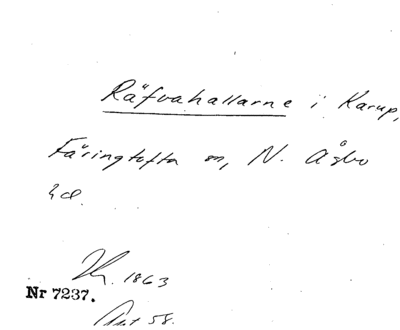 Räfvahallarne i Karup,
Färingtofta sn, N. Åsbo
hd.
1863
Nr 7237.
58.